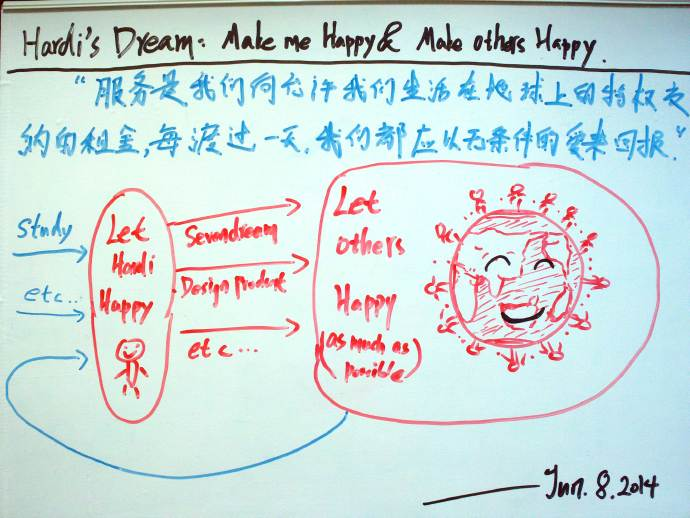 Hardi's Dream: Make me Happy & Make others Happy.
"服务是我们向允许我们生活在地球上的特权支
约的租金,每渡过一天,我们都应以无条件的爱来回报."
Study
etc...
Let
Hardi
Happy
Sevendream
Design Product
etc...
Let
others
Happy
(as much as
possible)
Jun. 8. 2014